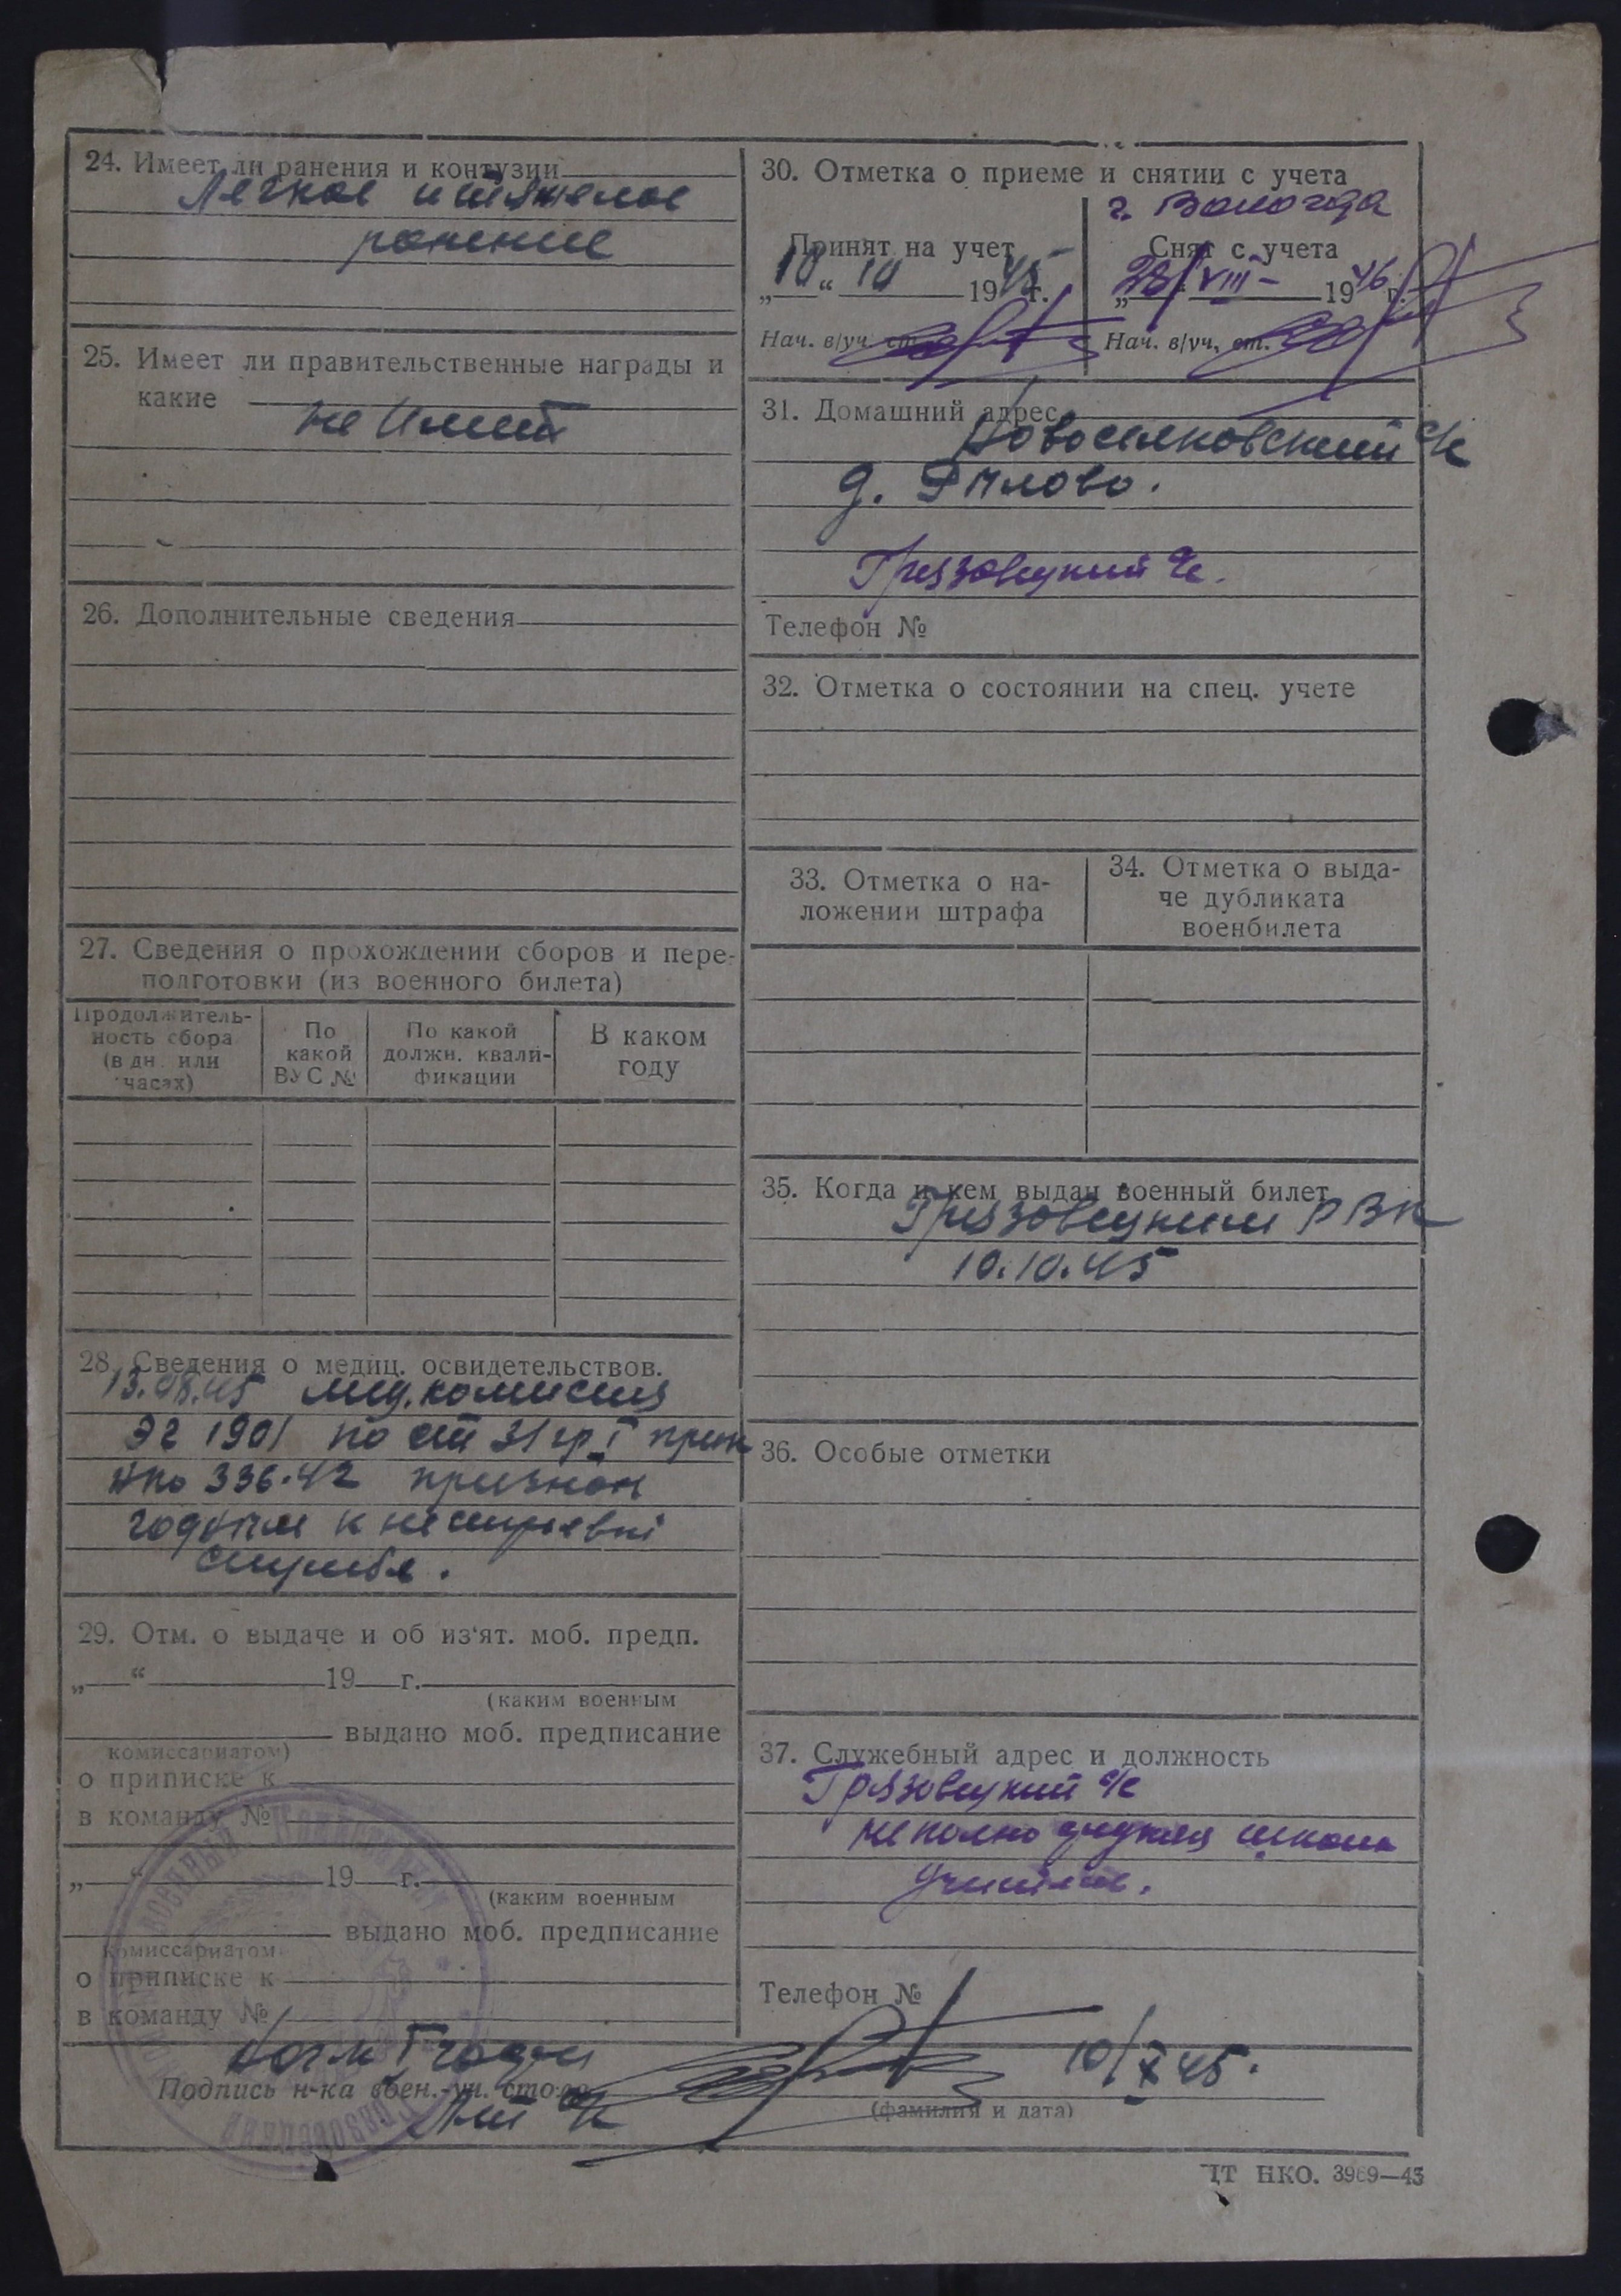 24. Имеет ли ранения и контузии
Легкое и тяжелое
ранение
25. Имеет ли правительственные награды и
какие
не имеет
26. Дополнительные сведения
27. Сведения о прохождении сборов и пере-
подготовки (из военного билета)
Продолжитель-
ность сбора
(в дн. или
часах)
По
какой
ВУС №
По какой
должн. квали-
фикации
В каком
году
28. Сведения о медиц. освидетельствов.
13.08.45 мед. комиссия
ЭГ 1901 по ст 31 гр. I прик
НКО 336-42 признан
годным к нестроевой
службе.
29. Отм. о выдаче и об из'ят. моб. предп.
„ “ 19 г.
(каким военным
выдано моб. предписание
комиссариатом)
о приписке к
в команду №
„ “ 19 г.
(каким военным
выдано моб. предписание
комиссариатом
о приписке к
в команду №
30. Отметка о приеме и снятии с учета
г. Вологда
Принят на учет
„10“ 10 1945 г.
Нач. в/уч. ст.
Снят с учета
„28“ VIII 1946 г.
Нач. в/уч. ст.
31. Домашний адрес
Новоселковский с/с
д.
Грязовецкий с/с.
Телефон №
32. Отметка о состоянии на спец. учете
33. Отметка о на-
ложении штрафа
34. Отметка о выда-
че дубликата
военбилета
35. Когда и кем выдан военный билет
Грязовецким РВК
10.10.45
36. Особые отметки
37. Служебный адрес и должность
Грязовецкий с/с
неполно средняя школа
учитель.
Телефон №
10/X 45.
Подпись н-ка воен.-уч. стола
(фамилия и дата)
ЦТ НКО. 3969—43